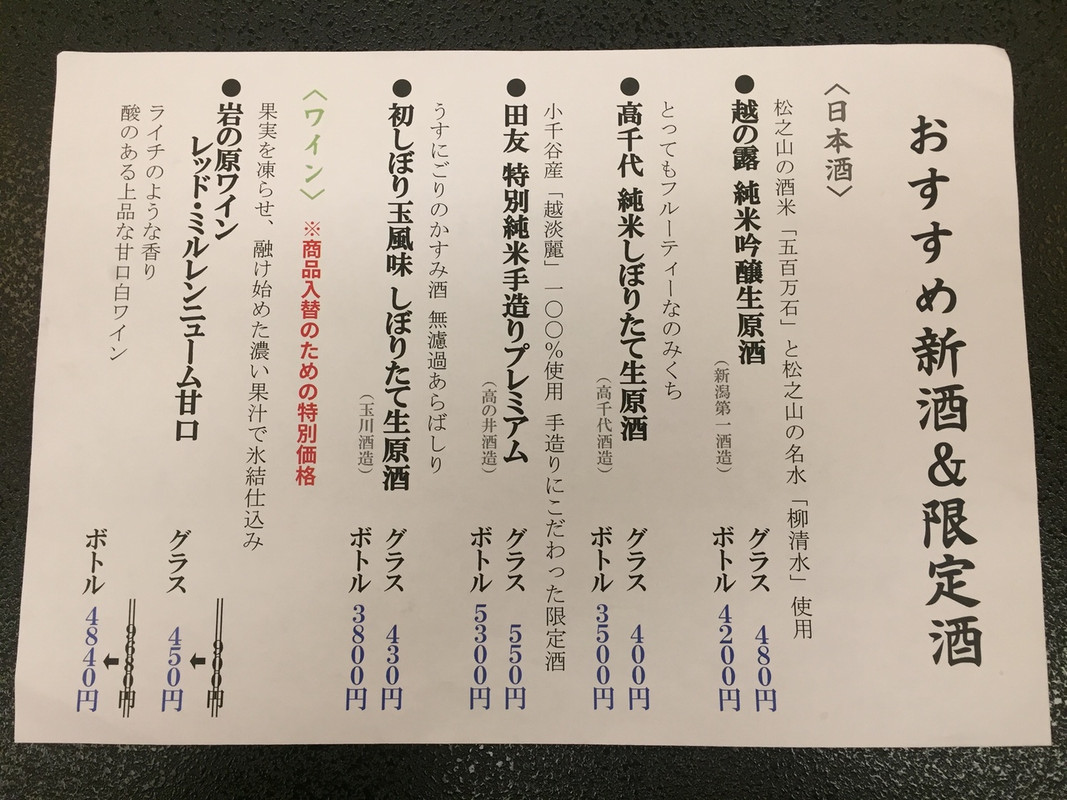 おすすめ新酒&限定酒
〈日本酒〉
松之山の酒米「五百万石」と松之山の名水「柳清水」使用
●越の露 純米吟醸生原酒
（新潟第一酒造）
グラス 480円
ボトル 4200円
とってもフルーティーなのみくち
●高千代 純米しぼりたて生原酒
（高千代酒造）
グラス 400円
ボトル 3500円
小千谷産「越淡麗」一〇〇%使用 手造りにこだわった限定酒
●田友 特別純米手造りプレミアム
（高の井酒造）
グラス 550円
ボトル 5300円
うすにごりのかすみ酒 無濾過あらばしり
●初しぼり玉風味 しぼりたて生原酒
（玉川酒造）
グラス 430円
ボトル 3800円
〈ワイン〉 ※商品入替のための特別価格
果実を凍らせ、融け始めた濃い果汁で氷結仕込み
●岩の原ワイン
レッド・ミルレンニューム甘口
ライチのような香り
酸のある上品な甘口白ワイン
900円
グラス 450円
9680円
ボトル 4840円